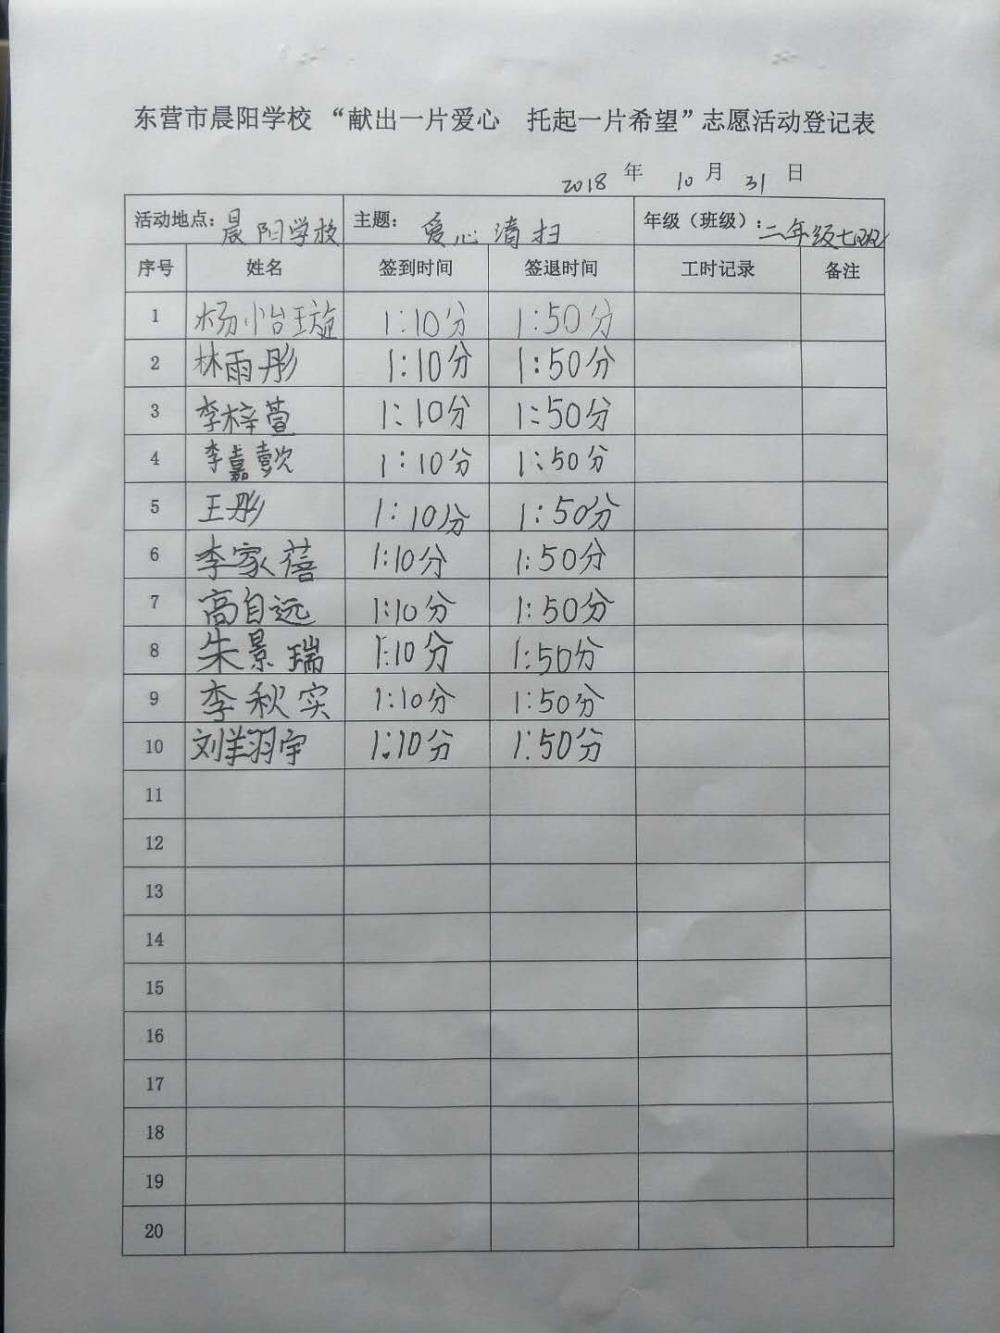 东营市晨阳学校 “献出一片爱心 托起一片希望”志愿活动登记表
2018 年 10 月 31 日
活动地点：晨阳学校 主题： 爱心清扫 年级（班级）：二年级七班
序号 姓名 签到时间 签退时间 工时记录 备注
1 杨怡璇 1:10分 1:50分
2 林雨彤 1:10分 1:50分
3 李梓萱 1:10分 1:50分
4 李嘉懿 1:10分 1:50分
5 王彤 1:10分 1:50分
6 李家蓓 1:10分 1:50分
7 高自远 1:10分 1:50分
8 朱景瑞 1:10分 1:50分
9 李秋实 1:10分 1:50分
10 刘羽宇 1:10分 1:50分
11
12
13
14
15
16
17
18
19
20